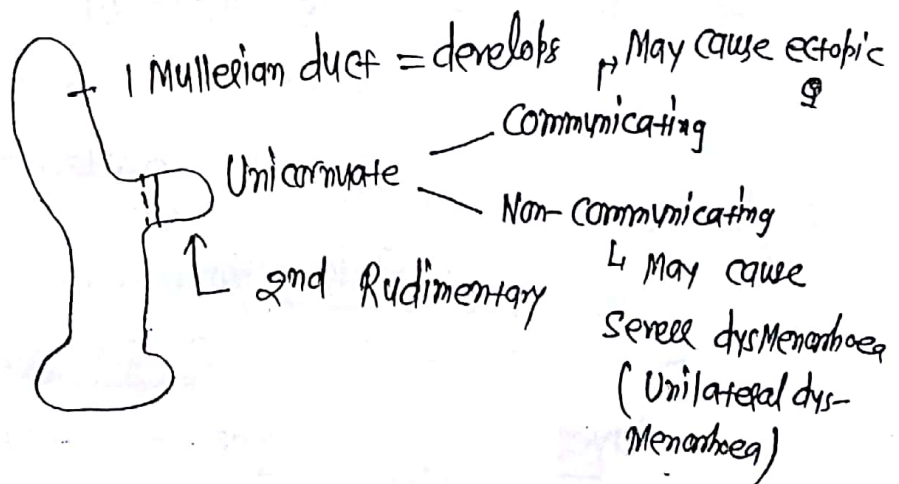 1 Mullerian duct = develops
↱ May cause ectopic
Unicornuate
Communicating
Non-Communicating
2nd Rudimentary
↳ May cause
Severe dysMenorrhoea
(Unilateral dys-
Menorrhoea)